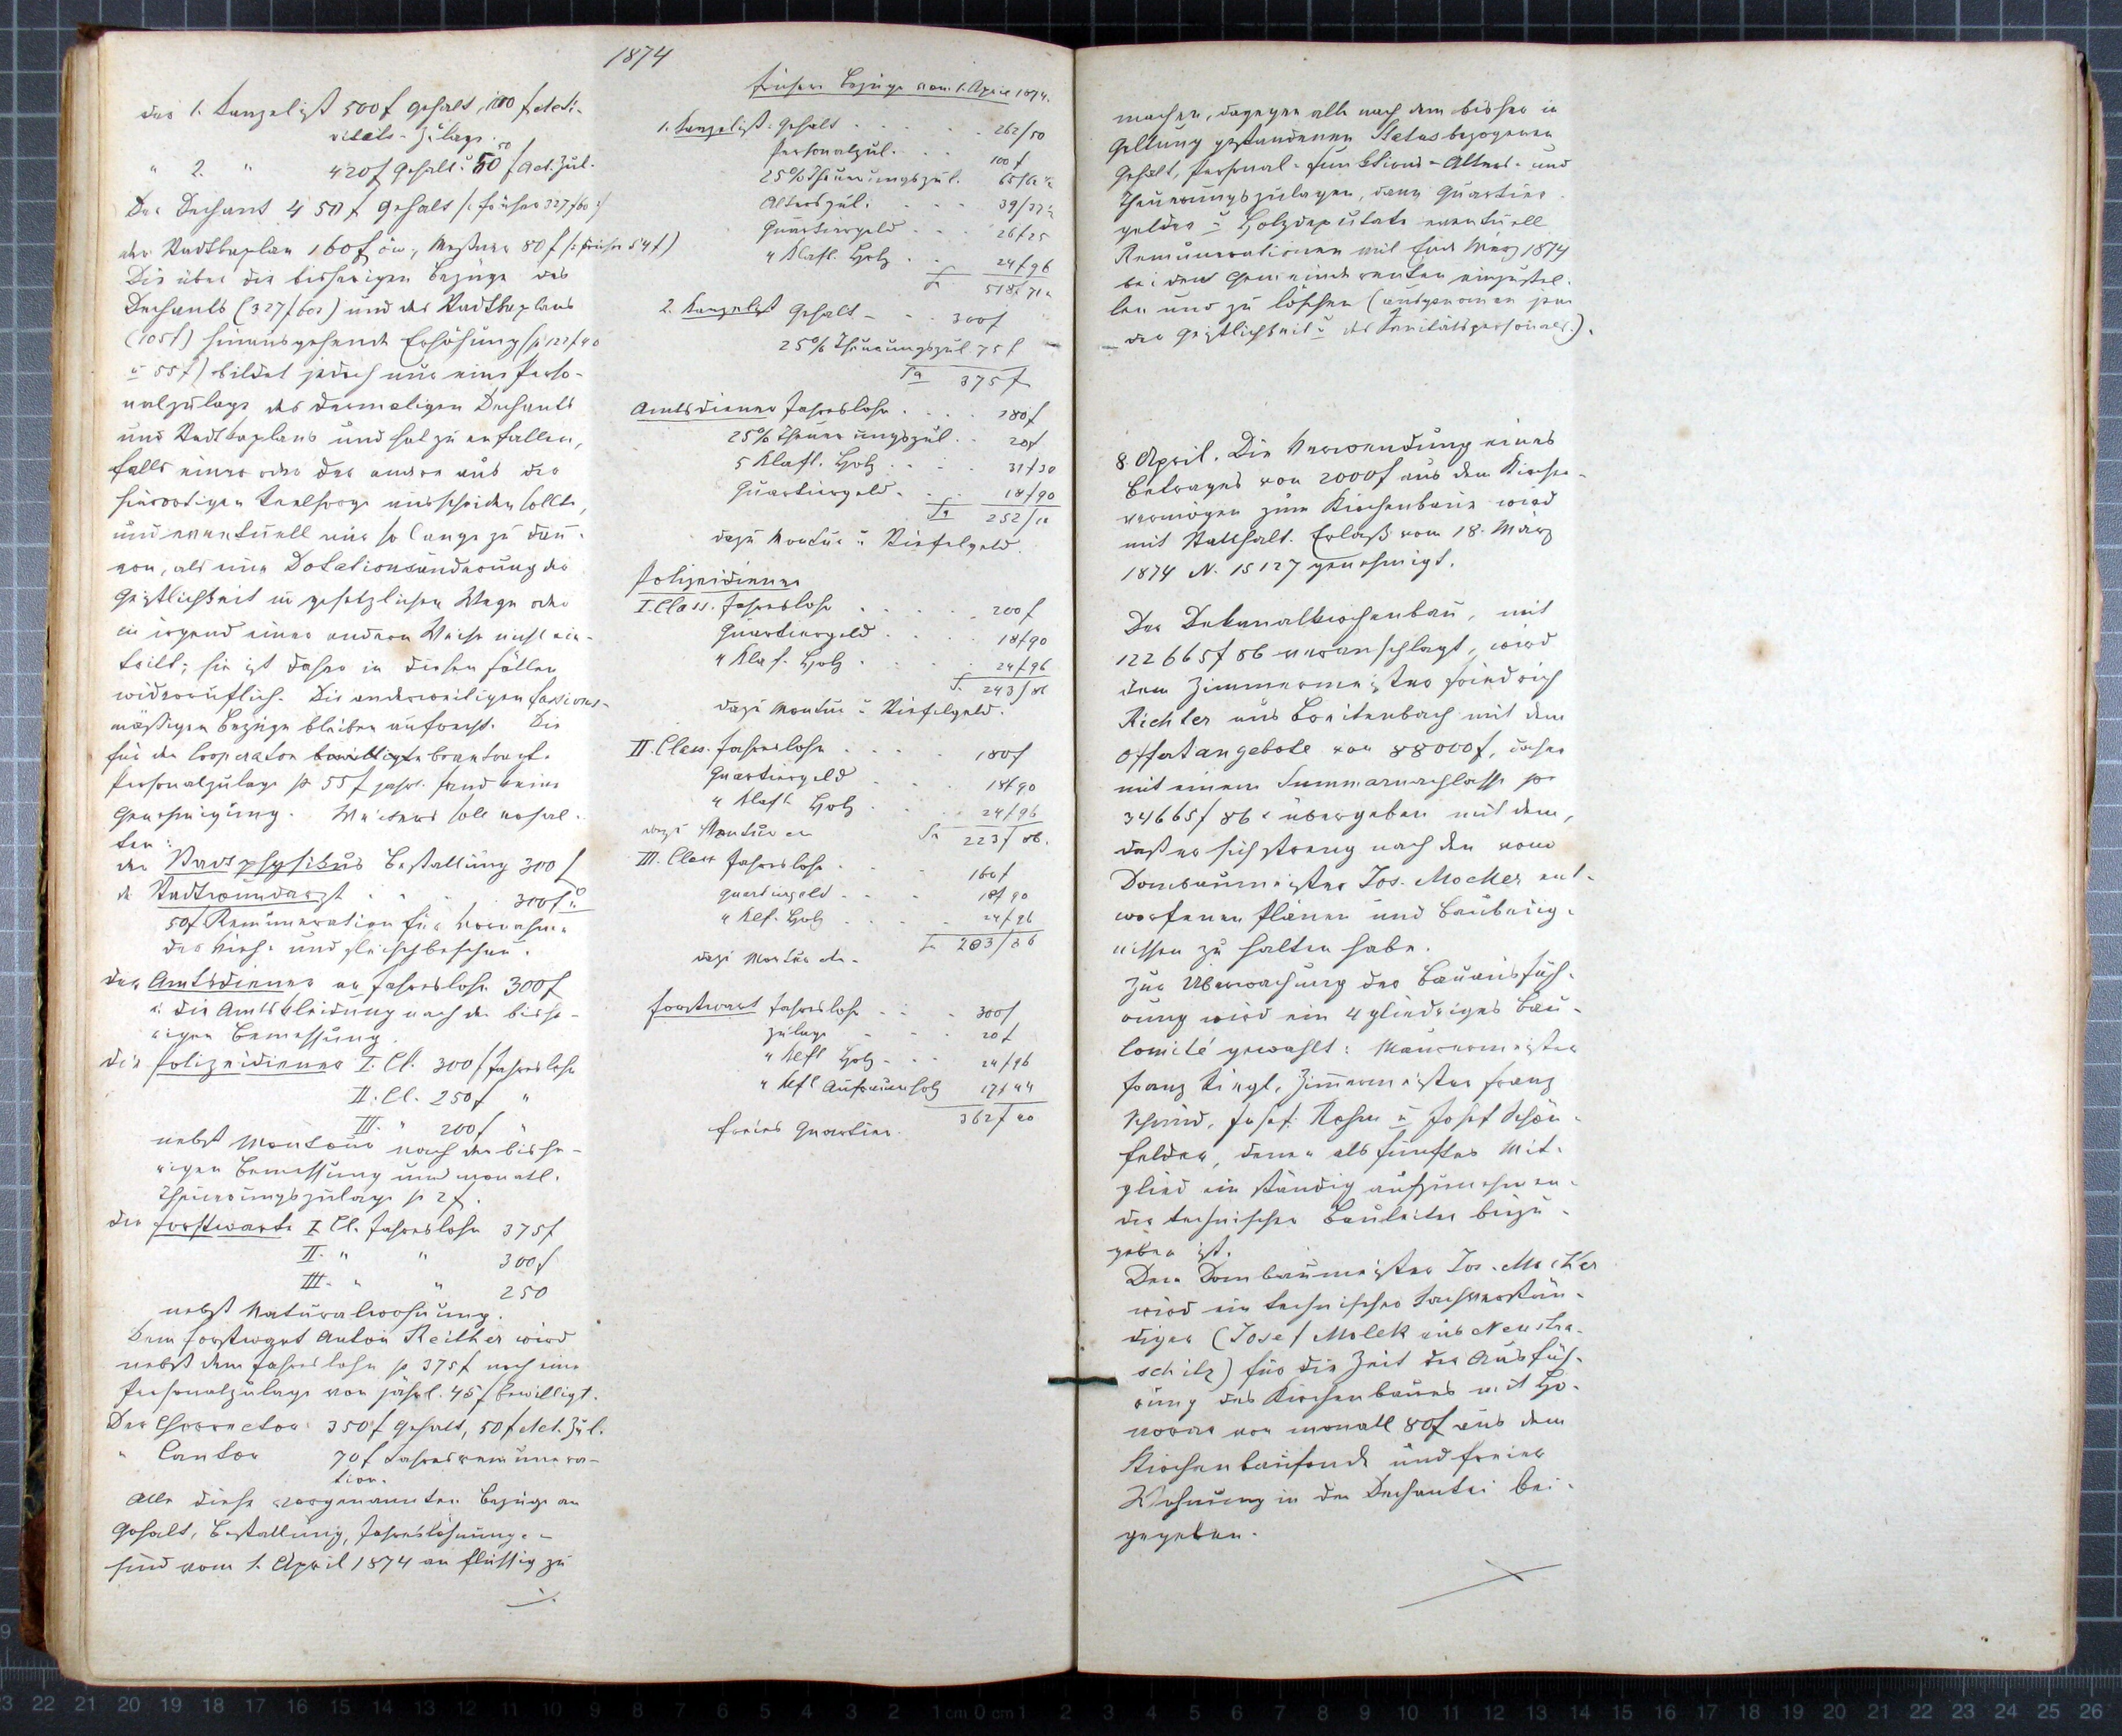 1874
der 1. Kanzelist 500 f Gehalt, 100 f Acti-
vitäts-Zulage.
" 2. " 420 f Gehalt u 50 f Act. Zul.
Der Dechant 450 f Gehalt (: früher 327 f 60 :)
der Stadtkaplan 160 f öw, Meßner 80 f (: früher 54 f)
Die über die bisherigen Bezüge des
Dechants (327 f 60) und des Stadtkaplans
(105 f) hinausgehende Erhöhung (pr 122 f 40
u 55 f) bildet jedoch nur eine Perso-
nalzulage des dermaligen Dechants
und Stadtkaplans und hat zu entfallen,
falls einer oder der andere aus der
hierortigen Seelsorge ausscheiden sollte,
und eventuell nur so lange zu dau-
ern, als eine Dotationsänderung der
Geistlichkeit im gesetzlichen Wege oder
in irgend einer andern Weise nicht ein-
tritt; sie ist daher in diesen Fällen
widerruflich. Die anderweitigen fassions-
mäßigen Bezüge bleiben aufrecht. Die
für den Cooperator beantragte
Personalzulage pr 55 f jährl. fand keine
Genehmigung. Weiters soll erhal-
ten:
der Stadtphysikus Bestallung 300 f
der Stadtwundarzt . . 300 f u
50 f Remuneration für Vornahme
der Vieh- und Fleischbeschau.
der Amtsdiener an Jahreslohn 300 f
u. die Amtskleidung nach der bishe-
rigen Bemessung.
die Polizeidiener I. Cl. 300 f Jahreslohn
II. Cl. 250 f "
III. " 200 f "
nebst Montour nach der bishe-
rigen Bemessung und monatl.
Theuerungszulage pr 2 f.
die Forstwarte I Cl. Jahreslohn 375 f
II. " " 300 f
III. " " 250
nebst Naturalwohnung.
Dem Forstwart Anton Reither wird
nebst dem Jahreslohn pr 375 f noch eine
Personalzulage von jährl. 45 f bewilligt.
Der Chorrector 350 f Gehalt, 50 f Act. Zul.
" Cantor 70 f Jahresremunera-
tion.
Alle diese vorgenannten Bezüge an
Gehalt, Bestallung, Jahreslöhnungen
sind vom 1. April 1874 an flüssig zu
frühere Bezüge vom 1. April 1874.
1. Kanzelist: Gehalt . . . . 262/50
Personalzul. . . 100 f
25% Theuerungszul. 65/62 ½
Alterszul. . . . 39/37 ½
Quartiergeld . . . 26 f 25
4 Klaft. Holz . . 24 f 96
Sa 518 f 71
2. Kanzelist Gehalt - . . 300 f
25% Theuerungszul. 75 f
Sa 375 f
Amtsdiener Jahreslohn . . . 180 f
25% Theuerungszul. . 20 f
5 Klaft. Holz . . . 31 f 20
Quartiergeld . . . 18 f 90
Sa 252/10
dazu Montur u Stiefelgeld.
Polizeidiener
I. Class. Jahreslohn . . . . 200 f
Quartiergeld . . . 18 f 90
4 Klaf. Holz . . . . 24 f 96
S. 243 f 86
dazu Montur u Stiefelgeld.
II. Class. Jahreslohn . . . . 180 f
Quartiergeld . . . 18 f 90
4 Klaft Holz . . . 24/96
dazu Montur etc Sa 223 f 86.
III. Class Jahreslohn . . . 160 f
Quartiergeld . . . 18 f 90
4 Klf. Holz . . . . 24 f 96
Sa 203/86
dazu Montur etc.
Forstwart Jahreslohn . . . 300 f
Zulage - - - 20 f
4 Klft Holz - . . 24/96
4 Klft Aufräumholz 17 f 44
362 f 40
freies Quartier.
machen, dagegen alle nach dem bisher in
Geltung gestandenen Status bezogenen
Gehalt, Personal- Funktions- Alters- und
Theuerungszulagen, dann Quartier-
gelder u Holzdeputate eventuell
Remunerationen mit Ende März 1874
bei den Gemeinderenten einzustel-
len und zu löschen (ausgenommen jene
der Geistlichkeit u des Sanitätspersonals.).
8. April. Die Verwendung eines
Betrages von 2000 f aus dem Kirchen-
vermögen zum Kirchenbaue wird
mit Statthalt. Erlaß vom 18. März
1874 N. 15127 genehmigt.
Der Dekanalkirchenbau, mit
122665 f 86 veranschlagt, wird
dem Zimmermeister Friedrich
Richter aus Breitenbach mit dem
Offertangebote von 88000 f, daher
mit einem Summarnachlasse pr
34665 f 86 übergeben mit dem,
daß er sich streng nach den vom
Dombaumeister Jos. Mocker ent-
worfenen Plänen und Baubeding-
nissen zu halten habe.
Zur Überwachung der Bauausfüh-
rung wird ein 4gliedriges Bau-
Comité gewählt: Maurermeister
Franz Siegl, Zimmermeister Franz
Schmid, Josef Rohm u Josef Schön-
felder, denen als fünftes Mit-
glied ein ständig aufzunehmen-
der technischer Bauleiter beizu-
geben ist.
Dem Dombaumeister Jos. Mocker
wird ein technischer Sachverstän-
diger (Josef Molek aus Neustra-
schitz) für die Zeit der Ausfüh-
rung des Kirchenbaues mit Ho-
norar von monatl 80 f aus dem
Kirchenbaufonde und freier
Wohnung in der Dechantei bei-
gegeben.